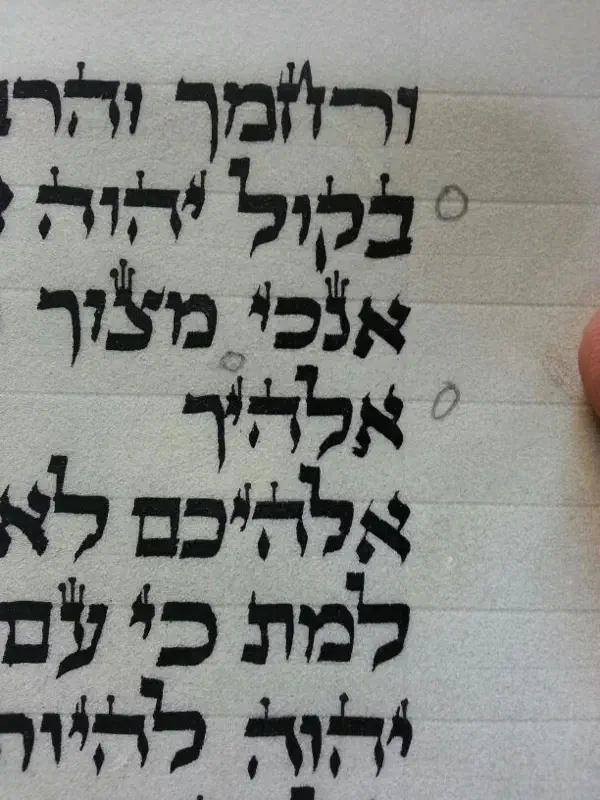 ורחמך והרב
בקול יהוה
אנכי מצוך
אלהיך
אלהיכם לא
למת כי עם
יהוה להיות